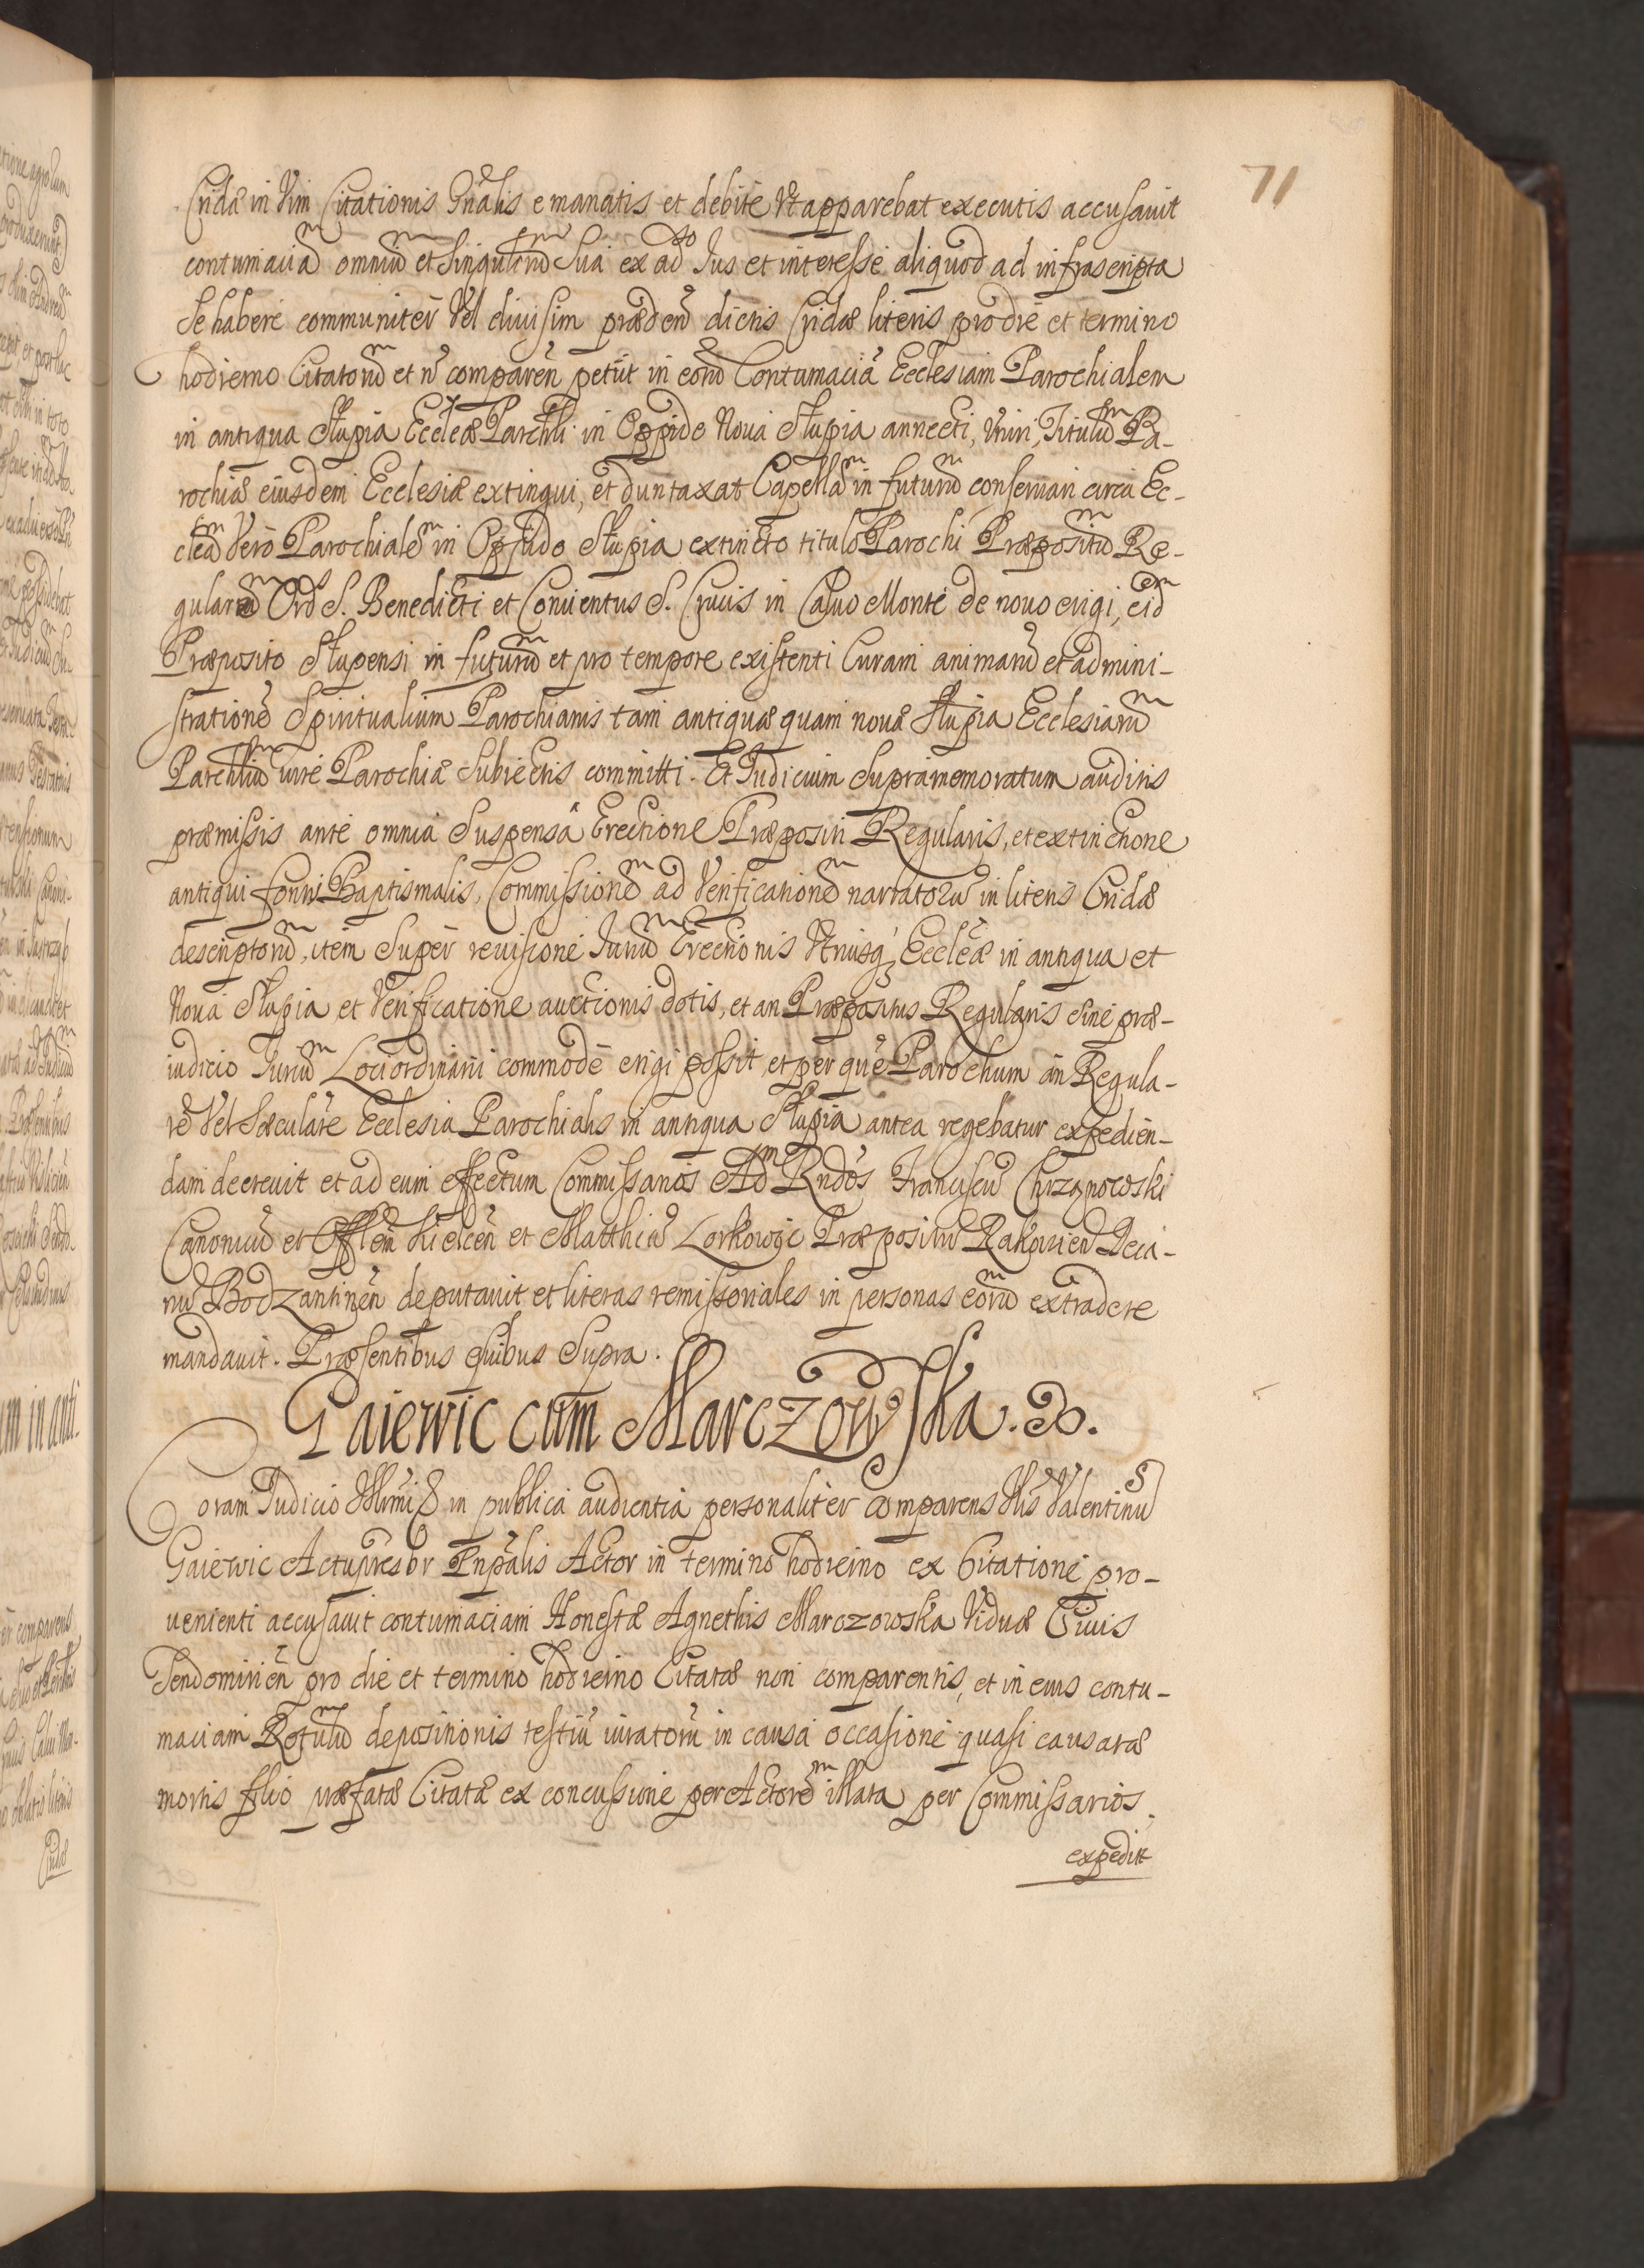 71
Cridæ in Vim Citationis Gñalis emanatis et debite Vt apparebat executis accusauit
contumaciã omniũ et Singulorũ Sua ex adso Jus et interesse aliquod ad infrascripta
Se habere communiter Vel diuisim prædeñ dictis Cridæ literis pro die et termino
hodierno Citatorũ et ñ compareñ petiit in eorũ Contumaciã Ecclesiam Parochialem
in antiqua Słupia Eccleæ Parchli in Oppido Noua Słupia annecti, Vniri, Titulũ Pa-
rochiæ eiusdem Ecclesiæ extingui, et duntaxat Capellã in futurũ conseruari circa Ec-
cleã Vero Parochialẽ in Oppido Słupia extincto titulo Parochi Præpositũ Re-
gularẽ Ord S. Benedicti et Conuentus S. Crucis in Caluo Monte de nouo erigi, eid
Præposito Słupensi in futurũ et pro tempore existenti Curam animarũ et admini-
strationẽ Spiritualium Parochianis tam antiquæ quam nouæ Słupia Ecclesiarũ
Parchliũ iure Parochiæ Subiectis committi. Et Judicium Supramemoratum auditis
præmissis ante omnia Suspensâ Erectione Præpositi Regularis, et extinctione
antiqui fontis Baptismalis, Commissionẽ ad Verificationẽ narratorũ in literis Cridæ
descriptorũ, item Super reuisione Juriũ Erectionis Vtriusq; Eccleæ in antiqua et
Noua Słupia et Verificatione auctionis dotis, et an Præpositus Regularis Sine præ-
iudicio Juriũ Loci ordinarii commode erigi possit, et per quẽ Parochum an Regula-
rẽ Vel Sæculare Ecclesia Parochialis in antiqua Słupia antea regebatur expedien-
dam decreuit et ad eum effectum Commissarios Adm Rndos Franciscũ Chrzanowski
Canonicũ et Offlẽm Kielceñ et Matthiã Lorkowic Præpositũ Rakouieñ Deca-
nũ Bodzantineñ deputauit et literas remissoriales in personas eorũ extradere
mandauit. Præsentibus quibus Supra.
Gaiewic cum Marczowska.
Coram Judicio in publica audientia personaliter comparens Hlis Valentinus
Gaiewic Actupræsbr Pnpalis Actor in termino hodierno ex Citatione pro-
uenienti accusauit contumaciam Honestæ Agnethis Marczowska Viduæ Ciuis
Sendomirieñ pro die et termino hodierno Citatæ non comparentis, et in eius contu-
maciam Rotulũ depositionis testiũ iuratorũ in causa occasione quasi causatæ
mortis filio præfatæ Citatæ ex concussione per Actorẽ illata per Commissarios
expedit